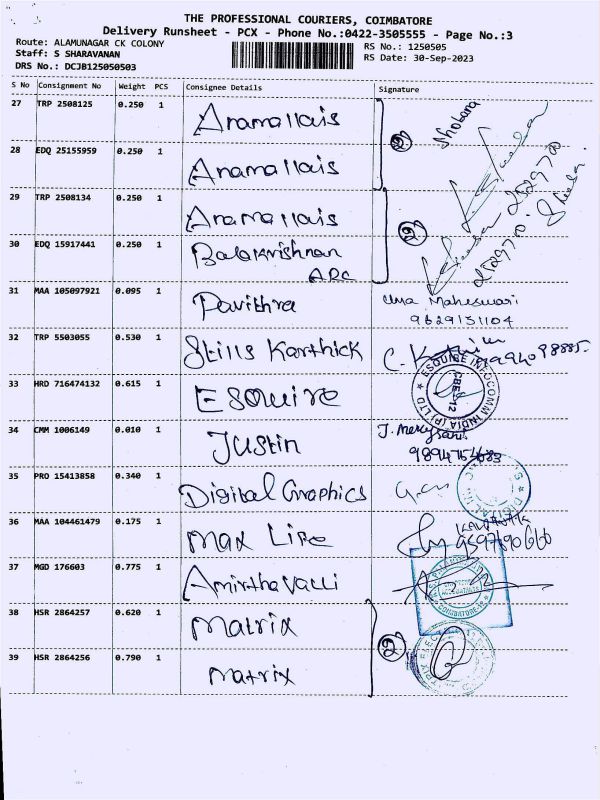 THE PROFESSIONAL COURIERS, COIMBATORE
Delivery Runsheet - PCX - Phone No.:0422-3505555 - Page No.:3
Route: ALAMUNAGAR CK COLONY
Staff: S SHARAVANAN
DRS No.: DCJB125050503
RS No.: 1250505
RS Date: 30-Sep-2023
S No Consignment No Weight PCS Consignee Details Signature
27 TRP 2508125 0.250 1 Anamallais
28 EDQ 25155959 0.250 1 Anamallais
29 TRP 2508134 0.250 1 Anamallais
30 EDQ 15917441 0.250 1 Balakrishnan
ARC
2529700
2529700
31 MAA 105097921 0.095 1 Pavithra Uma Maheswari
9629151104
32 TRP 5503055 0.530 1 Stills Karthick
33 HRD 716474132 0.615 1 Esquire
ESQUIRE INFOCOMM INDIA (P) LTD
CBE-12
34 CMM 1006149 0.010 1 Justin
35 PRO 15413858 0.340 1 Digital Graphics
36 MAA 104461479 0.175 1 Max Life
37 MGD 176603 0.775 1 Amirthavalli
COIMBATORE-12
38 HSR 2864257 0.620 1 Matrix
2
39 HSR 2864256 0.790 1 Matrix